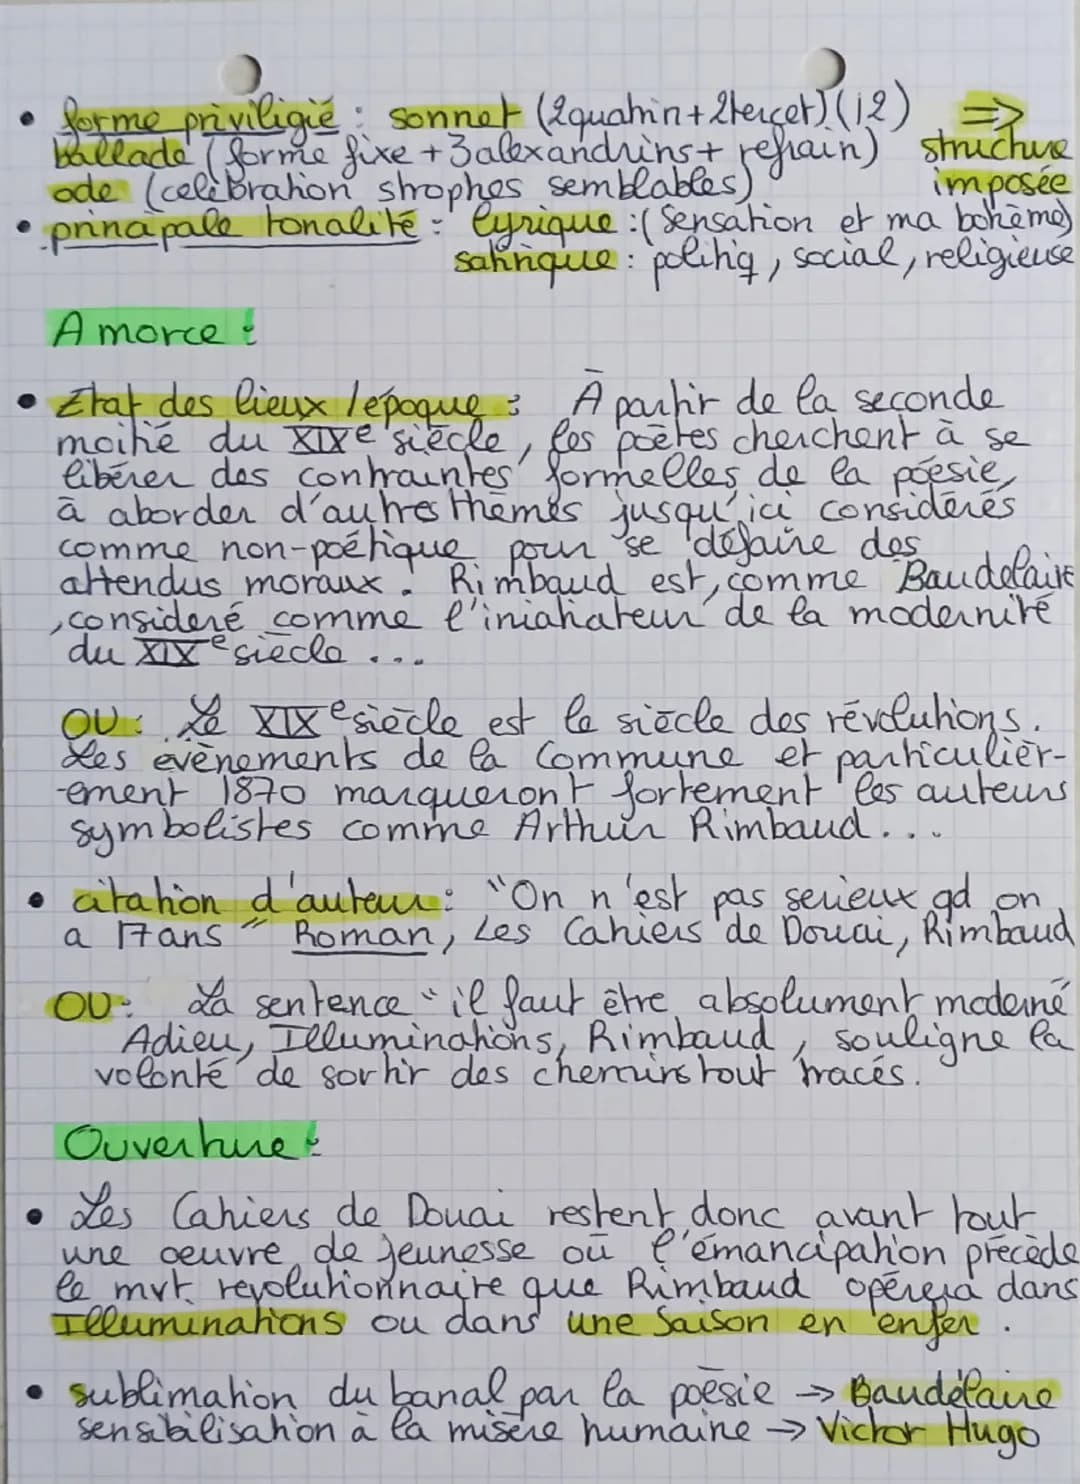 • forme priviligié : sonnet (2quatrin+2tercet) (12) =>
ballade (forme fixe +3alexandrins+ refrain) structure
ode (celébration strophes semblables) imposée
• principale tonalité : lyrique :( Sensation et ma bohème)
satirique : politiq, social, religieuse
Amorce :
• Etat des lieux /époque : À partir de la seconde
moitié du XIXe siècle, les poètes cherchent à se
libérer des contraintes formelles de la poésie,
à aborder d'autres thèmes jusqu'ici considérés
comme non-poétique pour se défaire des
attendus moraux. Rimbaud est, comme Baudelaire
, consideré comme l'iniatiateur de la modernité
du XIXe siècle ...
OU : Le XIXe siècle est le siècle des révolutions.
Les évènements de la Commune et particulièr-
-ement 1870 marqueront fortement les auteurs
symbolistes comme Arthur Rimbaud...
• citation d'auteur : "On n'est pas serieux qd on
a 17ans" Roman, Les Cahiers de Douai, Rimbaud
OU : La sentence "il faut être absolument moderne"
Adieu, Illuminations, Rimbaud, souligne la
volonté de sortir des chemins tout tracés.
Ouverture :
• Les Cahiers de Douai restent donc avant tout
une oeuvre de jeunesse où l'émancipation précède
le mvt revolutionnaire que Rimbaud opérera dans
Illuminations ou dans une Saison en enfer.
• sublimation du banal par la poésie → Baudelaire
sensibilisation à la misère humaine → Victor Hugo